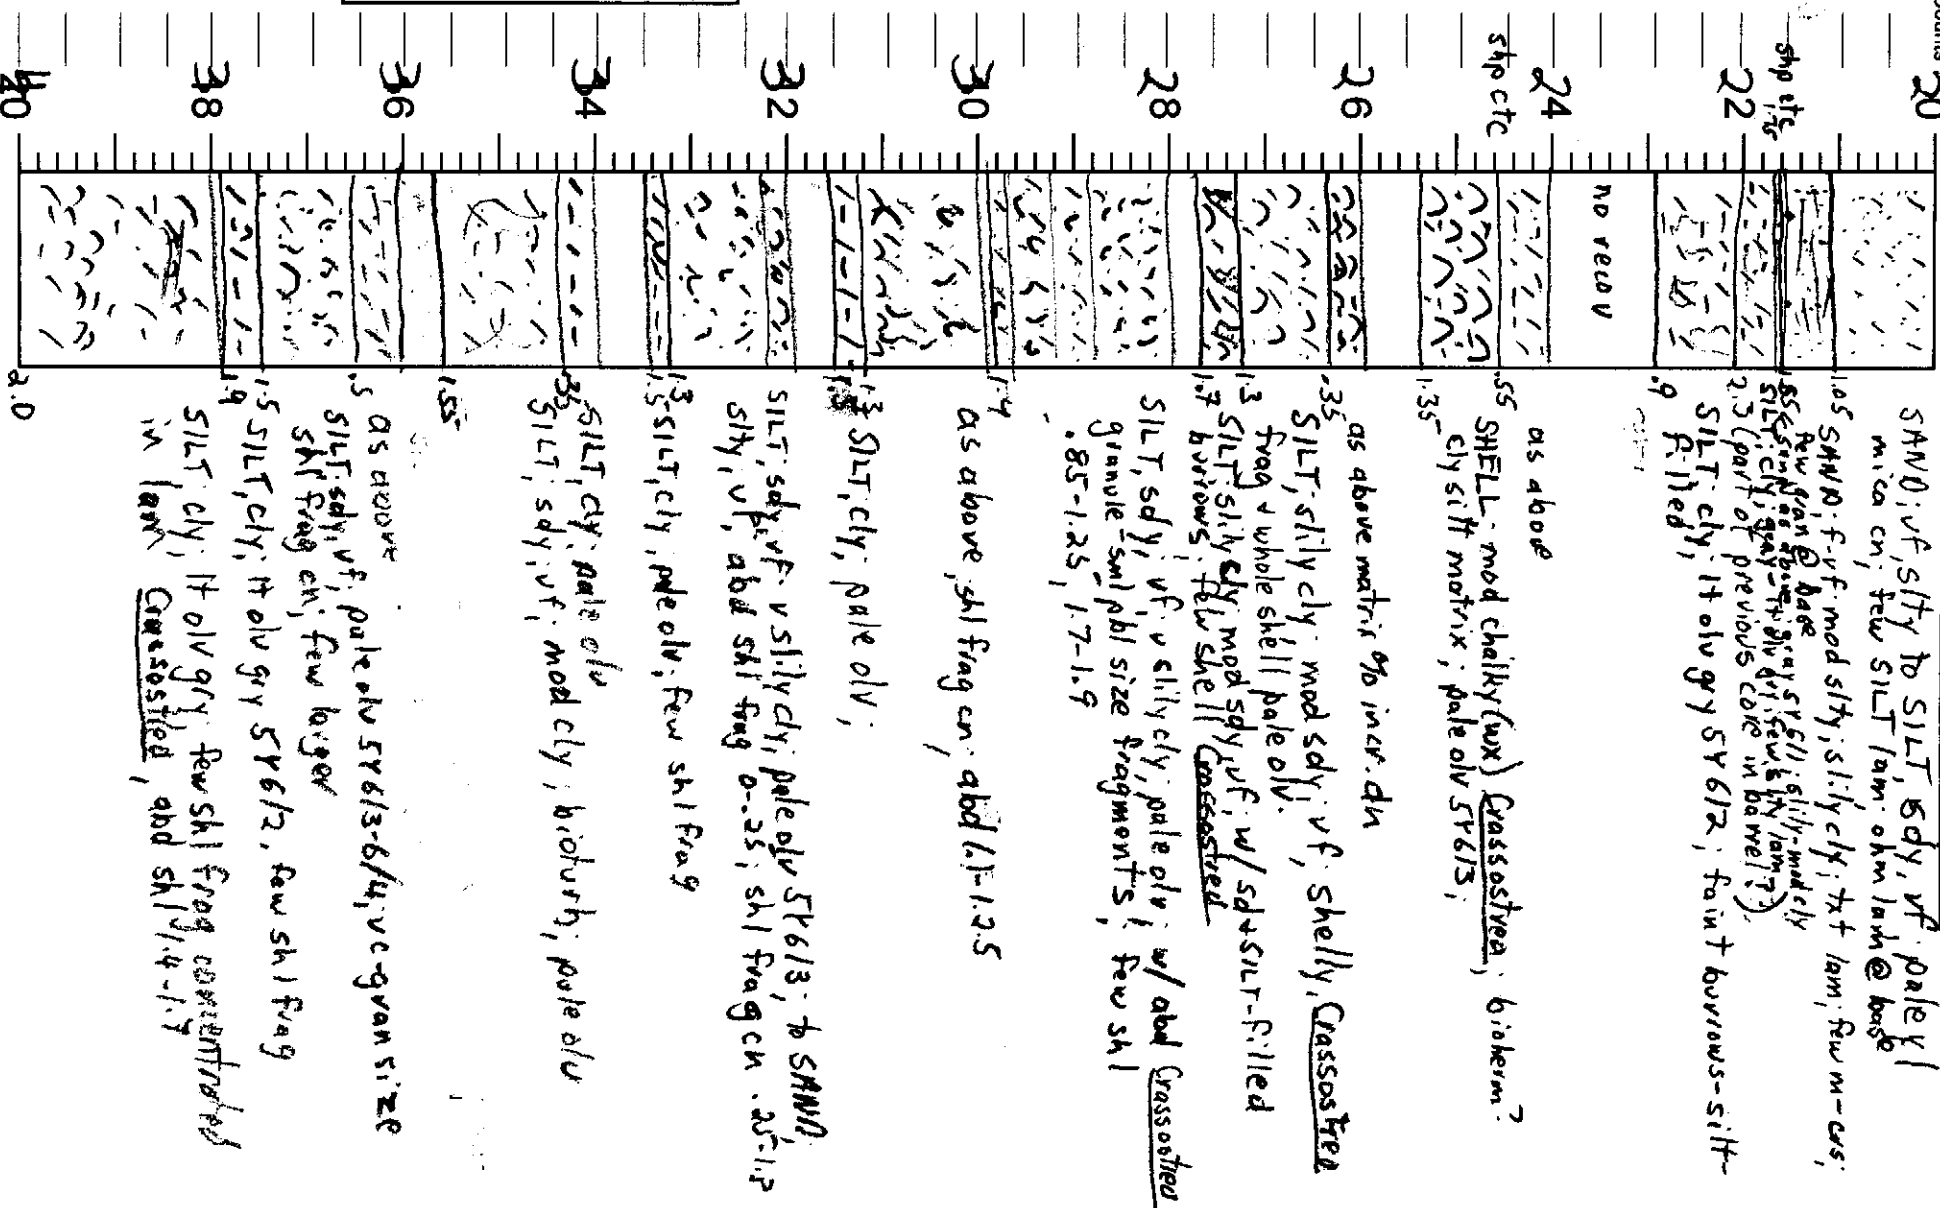 20
SAND, vf, slty to SILT, sdy, vf; pale yl
mica cn; few SILT lam; ohm lam @ base
1.05 SAND: f-vf mod slty; slily cly; txt lam; few m-crs;
few gran @ base
shp ctc
SILT; cly; gray-lt olv gry; few slty lam?)
22
2.3 (part of previous core in barrel?)
SILT: cly; lt olv gry 5Y6/2; faint burrows-silt-
filled;
.9
no recov
24
as above
shp ctc
.55
SHELL: mod chalky (wx) Crassostrea; bioherm?
cly silt matrix; pale olv 5Y6/3;
1.35
26
as above matrix % incr. dn
.35
SILT; slily cly; mod sdy; vf; shelly, Crassostrea
frag & whole shell pale olv.
1.3
SILT: slily cly; mod sdy, vf; w/ sd+SILT-filled
1.7 burrows; few shell Crassostrea
28
SILT, sdy; vf; v slily cly, pale olv; w/ abd Crassostrea
granule-sml pbl size fragments; few shl
.85-1.25, 1.7-1.9
1.4
30
as above, shl frag cn; abd (.1)-1.25
1.3 SILT, cly; pale olv;
1.5
32
SILT; sdy, vf; v slily cly; pale olv 5Y6/3; to SAND,
slty; vf; abd shl frag 0-.25; shl frag cn .25-1.3
1.3
SILT, cly, pale olv; few shl frag
1.5
34
SILT, cly; pale olv
.35
SILT; sdy; vf; mod cly; bioturb; pale olv
1.55
36
as above
.5
SILT; sdy, vf; pale olv 5Y6/3-6/4; vc-gran size
shl frag cn; few larger
1.5 SILT, cly; lt olv gry 5Y6/2, few shl frag
1.9
38
SILT: cly; lt olv gry; few shl frag concentrated
in lam Crassostrea, abd shl 1.4-1.7
2.0
40